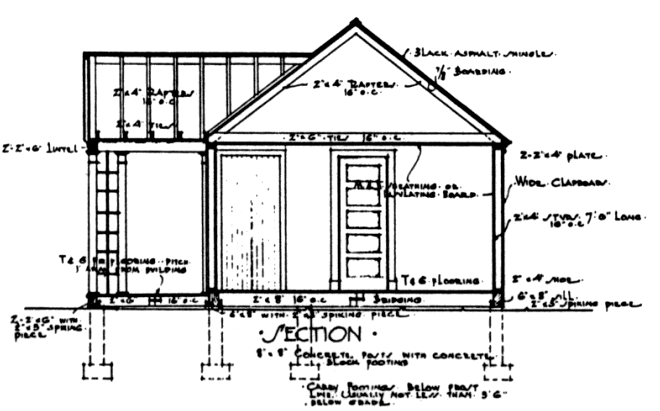 BLACK ASPHALT SHINGLES
7/8" BOARDING.
2"x4" RAFTERS
16" O.C.
2"x4" RAFTERS
16" O.C.
2"x4" TIES
2"x6" TIES 16" O.C.
2-2"x6" LINTEL
2-2"x4" PLATE.
SHEATHING OR
INSULATING BOARD.
WIDE CLAPBOARDS.
2"x4" STUDS 7'0" LONG.
16" O.C.
T & G FLOORING PITCH
FROM BUILDING
T & G FLOORING
2"x4" SHOE
6"x8" SILL
2"x3" SPIKING PIECE
2"x6" 16" O.C.
2"x8" 16" O.C.
BRIDGING
2-2"x6" WITH
2"x3" SPIKING
PIECE
6"x8" WITH 2"x3" SPIKING PIECE
·SECTION·
8"x8" CONCRETE POSTS WITH CONCRETE
BLOCK FOOTING
CARRY FOOTINGS BELOW FROST
LINE, USUALLY NOT LESS THAN 3'6"
BELOW GRADE.